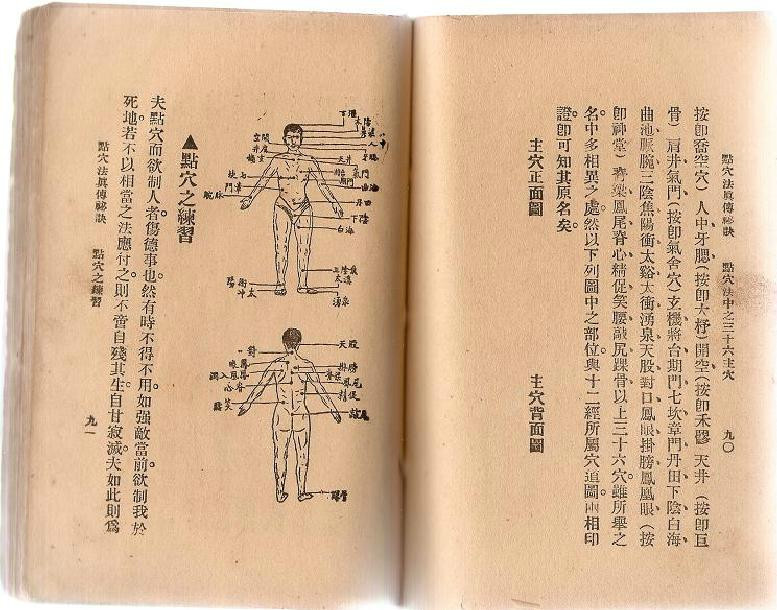 點穴法眞傳秘訣 點穴法中之三十六主穴 九〇
按卽喬空穴）人中、牙腮（按卽大杼）開空（按卽禾髎 天井（按卽巨
骨）肩井、氣門（按卽氣舍穴）玄機、將台、期門、七坎、章門、丹田、下陰、白海、
曲池、脈腕、三陰、焦陽、衝太、谿大衝、湧泉、天殷、對口、鳳眼、掛膀、鳳凰眼（按
卽神堂）脊樑、鳳尾、脊心、精促、笑腰、敲尻、踝骨、以上三十六穴。雖所舉之
名中多相異之處。然以下列圖中之部位與十二經所屬穴道圖。兩相印
證。卽可知其原名矣。
主穴正面圖 主穴背面圖
太陽
人中
空開
天井
氣門
期門
七坎
章門
脈腕
丹田
下陰
白海
湧泉
對口
掛膀
鳳尾
精促
脊心
笑腰
▲點穴之練習
夫點穴而欲制人者。傷德事也。然有時不得不用。如强敵當前。欲制我於
死地。若不以相當之法應付之。則不啻自殘其生。自甘寂滅。夫如此則爲
點穴法眞傳秘訣 點穴之練習 九一